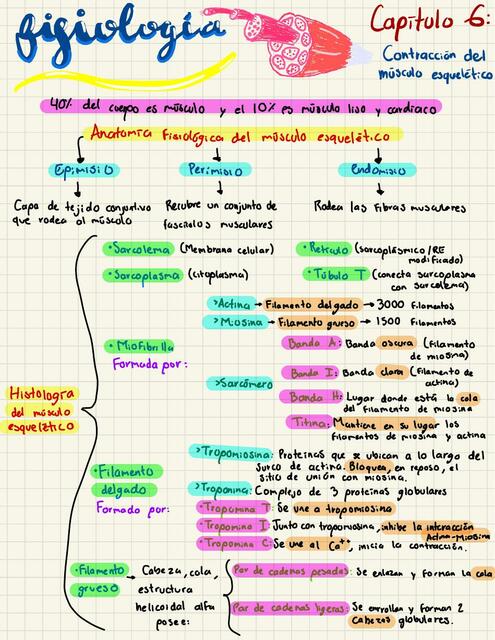 fisiología
Capítulo 6:
Contracción del
músculo esquelético
40% del cuerpo es músculo y el 10% es músculo liso y cardíaco
Anatomía fisiológica del músculo esquelético
Epimisio Perimisio Endomisio
Capa de tejido conjuntivo
que rodea al músculo
Recubre un conjunto de
fascículos musculares
Rodea las fibras musculares
Histología
del músculo
esquelético
• Sarcolema (Membrana celular)
• Sarcoplasma (citoplasma)
• Retículo (sarcoplásmico/RE
modificado)
• Túbulo T (conecta sarcoplasma
con sarcolema)
• Miofibrilla
Formada por:
>Actina → Filamento delgado → 3000 filamentos
>Miosina → Filamento grueso → 1500 filamentos
>Sarcómero
Banda A: Banda oscura (filamento
de miosina)
Banda I: Banda clara (filamento de
actina)
Banda H: Lugar donde está la cola
del filamento de miosina
Titina: Mantiene en su lugar los
filamentos de miosina y actina
• Filamento
delgado
Formado por:
>Tropomiosina: Proteínas que se ubican a lo largo del
surco de actina. Bloquea, en reposo, el
sitio de unión con miosina.
>Troponina: Complejo de 3 proteínas globulares
• Tropomina T: Se une a tropomiosina
• Tropomina I: Junto con tropomiosina, inhibe la interacción
Actina-Miosina
• Tropomina C: Se une al Ca++, inicia la contracción.
• Filamento
grueso
→ Cabeza, cola,
estructura
helicoidal alfa
posee:
Par de cadenas pesadas: Se enlazan y forman la cola
Par de cadenas ligeras: Se enrollan y forman 2
cabezas globulares.